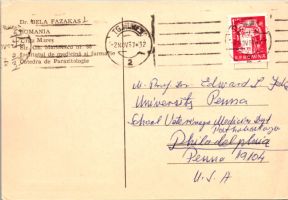 Dr. BELA FAZAKAS
ROMANIA
Tîrgu Mures
Str. Gh. Marinescu nr 38
Institutul de medicină și farmacie
Catedra de Parazitologie
TG. MURES
2
R.P. ROMINA
M. Prof. Dr. Edward L.
University Penna
School Veterinary Medicine Dept
Pathobiology
Philadelphia
Penna 19104
U.S.A